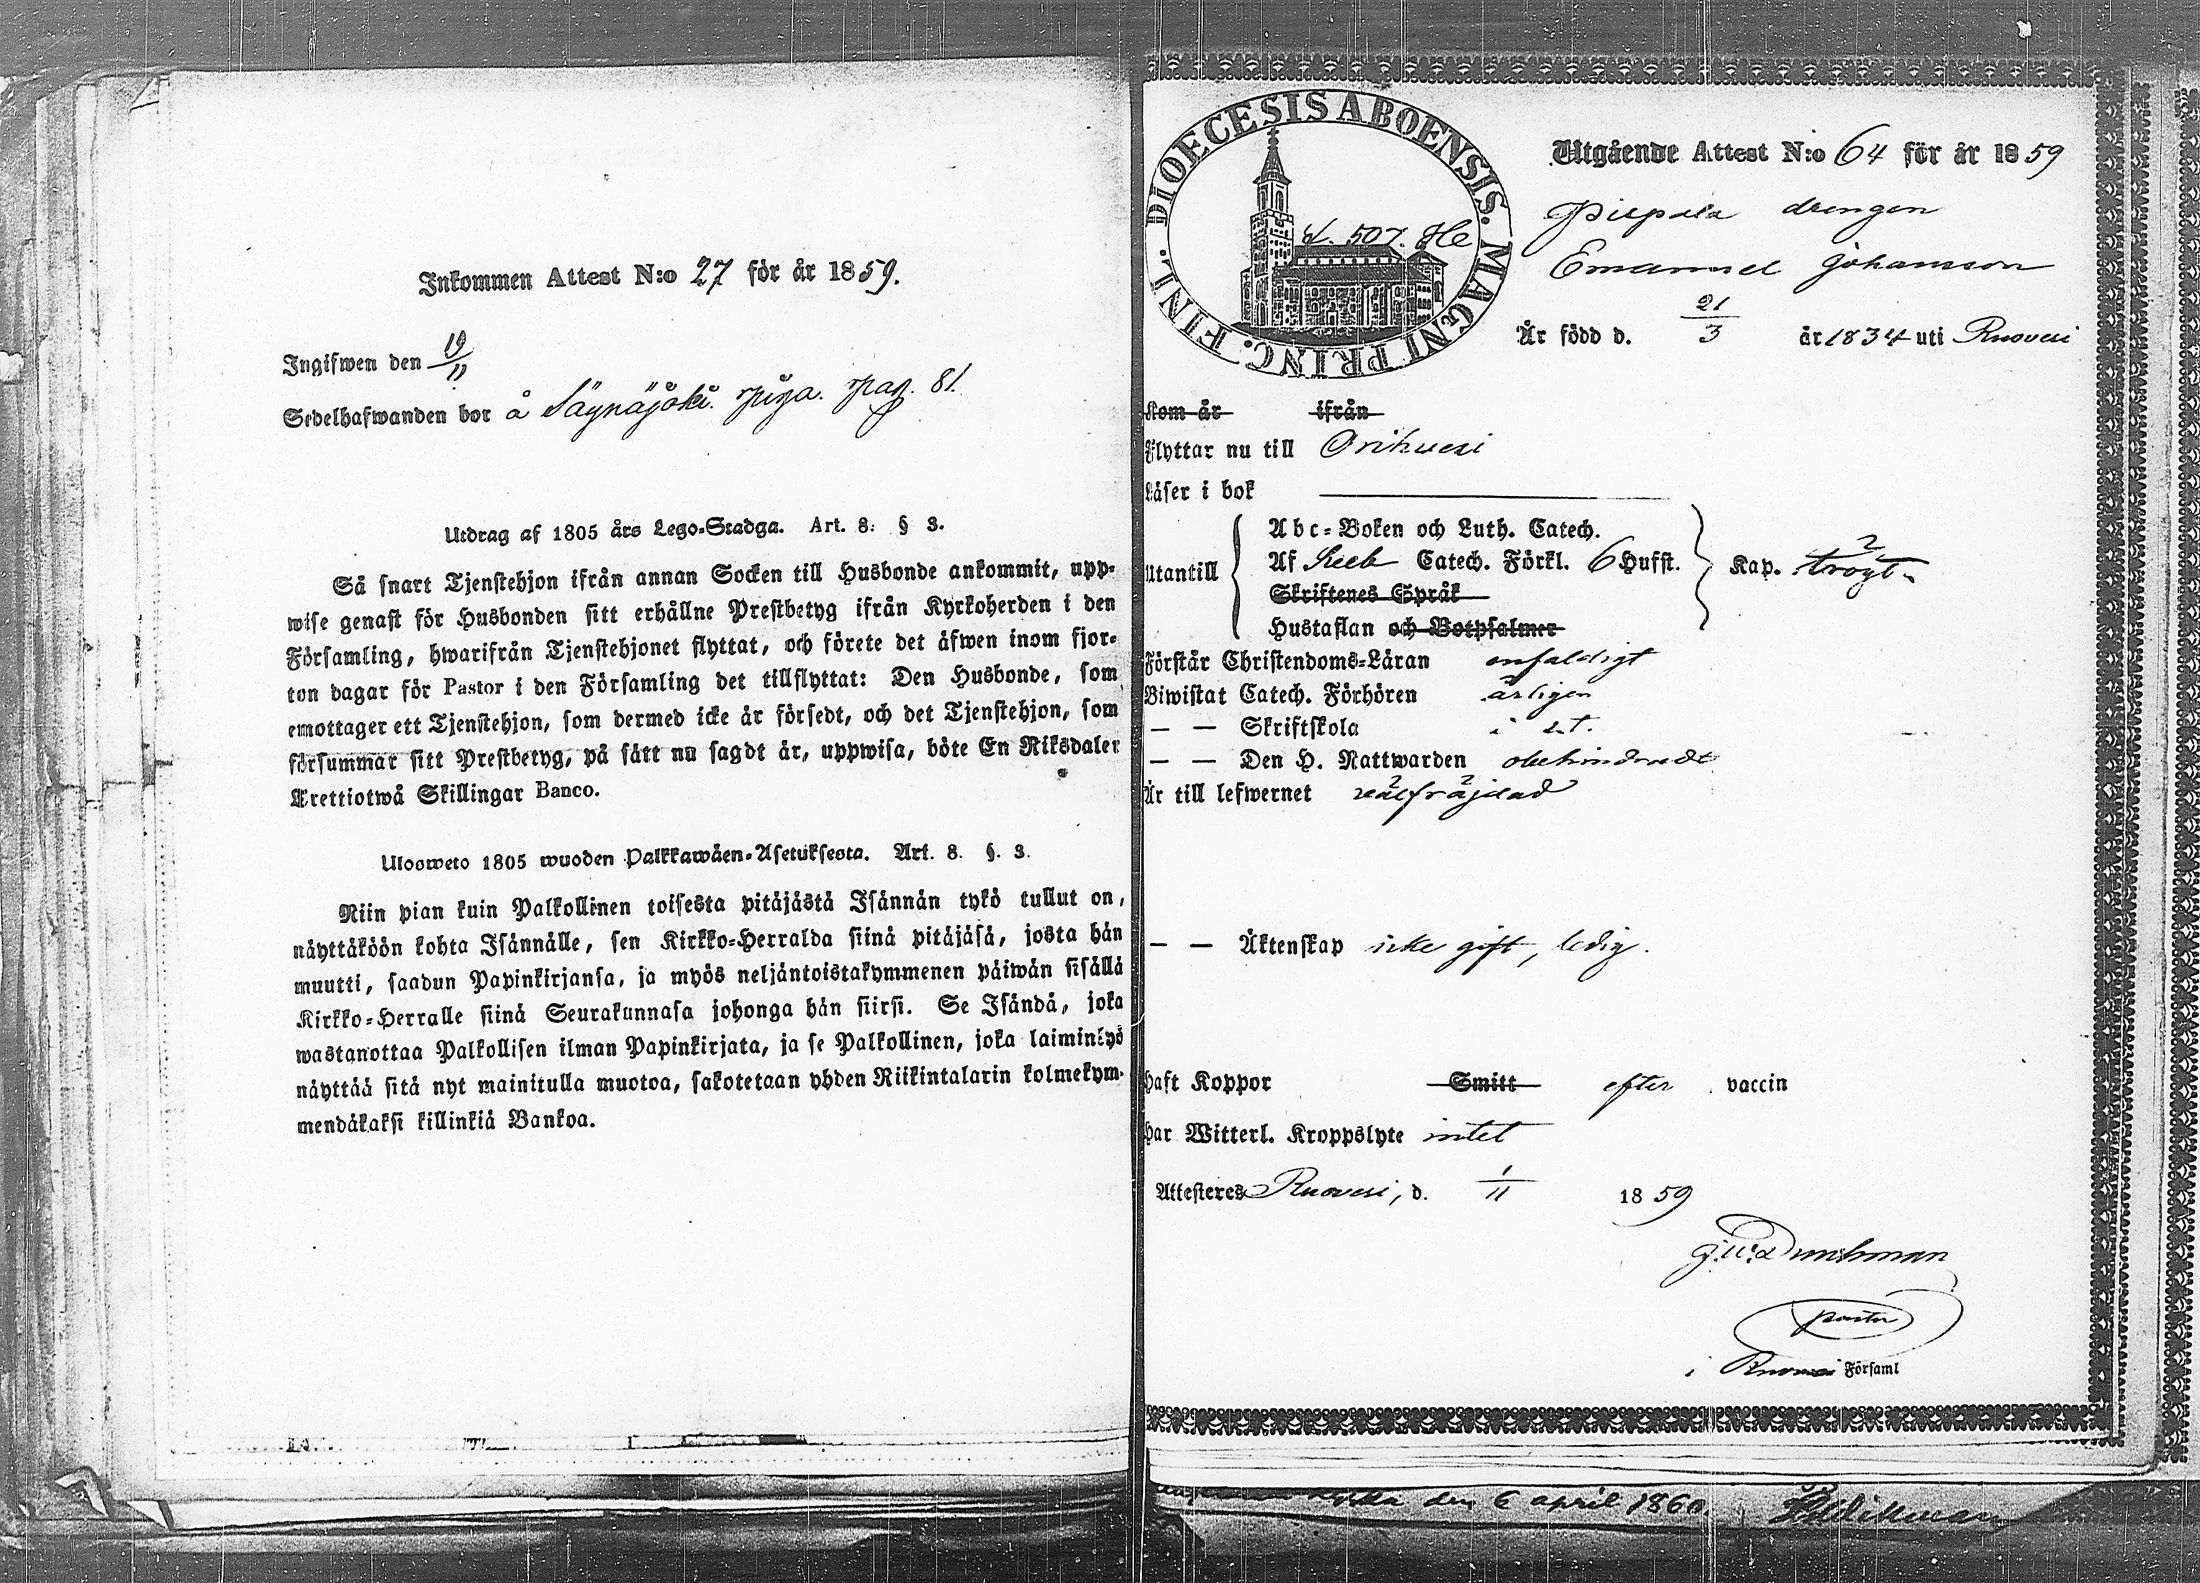 Inkommen Attest N:o 27 för år 1859.
Ingifwen den 19/11
Sedelhafwanden bor å Säynäjoki. piga. pag. 81.
Utdrag af 1805 års Lego-Stadga. Art. 8. § 3.
Så snart Tjenstehjon ifrån annan Socken till Husbonde ankommit, upp-
wise genast för Husbonden sitt erhållne Prestbetyg ifrån Kyrkoherden i den
Församling, hwarifrån Tjenstehjonet flyttat, och förete det äfwen inom fjor-
ton dagar för Pastor i den Församling det tillflyttat: Den Husbonde, som
emottager ett Tjenstehjon, som dermed icke är försedt, och det Tjenstehjon, som
försummar sitt Prestbetyg, på sätt nu sagdt är, uppwisa, böte En Riksdaler
Trettiotwå Skillingar Banco.
Ulosweto 1805 wuoden Palkkawäen-Asetuksesta. Art. 8. §. 3.
Niin pian kuin Palkollinen toisesta pitäjästä Isännän tykö tullut on,
näyttäköön kohta Isännälle, sen Kirkko-Herralda siinä pitäjäsä, josta hän
muutti, saadun Papinkirjansa, ja myös neljäntoistakymmenen päiwän sisällä
Kirkko-Herralle siinä Seurakunnasa johonga hän siirsi. Se Isändä, joka
wastanottaa Palkollisen ilman Papinkirjata, ja se Palkollinen, joka laiminlyö
näyttää sitä nyt mainitulla muotoa, sakotetaan yhden Riikintalarin kolmekym-
mendäkaksi killinkiä Bankoa.
DIOECESIS ABOENSIS. MAGNI PRINC. FINL.
L. 507.
Utgående Attest N:o 64 för år 1859
Piepala drengen
Emanuel Johansson
Är född d. 21/3 år 1834 uti Ruovesi
Kom år ifrån
Flyttar nu till Orihvesi
Läser i bok
Utantill
Abc-Boken och Luth. Catech.
Af Seeb Catech. Förkl. 6 Hufst. Kap. trögt
Skriftenes Språk
Hustaflan och Botpsalmer
Förstår Christendoms-Läran enfaldigt
Biwistat Catech. Förhören årligen
— — Skriftskola i s.t.
— — Den H. Nattwarden obehindradt
Är till lefwernet välfräjdad
— — Äktenskap icke gift, ledig.
Haft Koppor Smitt efter vaccin
Har Witterl. Kroppslyte intet
Attesteres Ruovesi, d. 1/11 1859
J. W. Durchman
pastor
i Ruovesi Församl
den 6 april 1860.